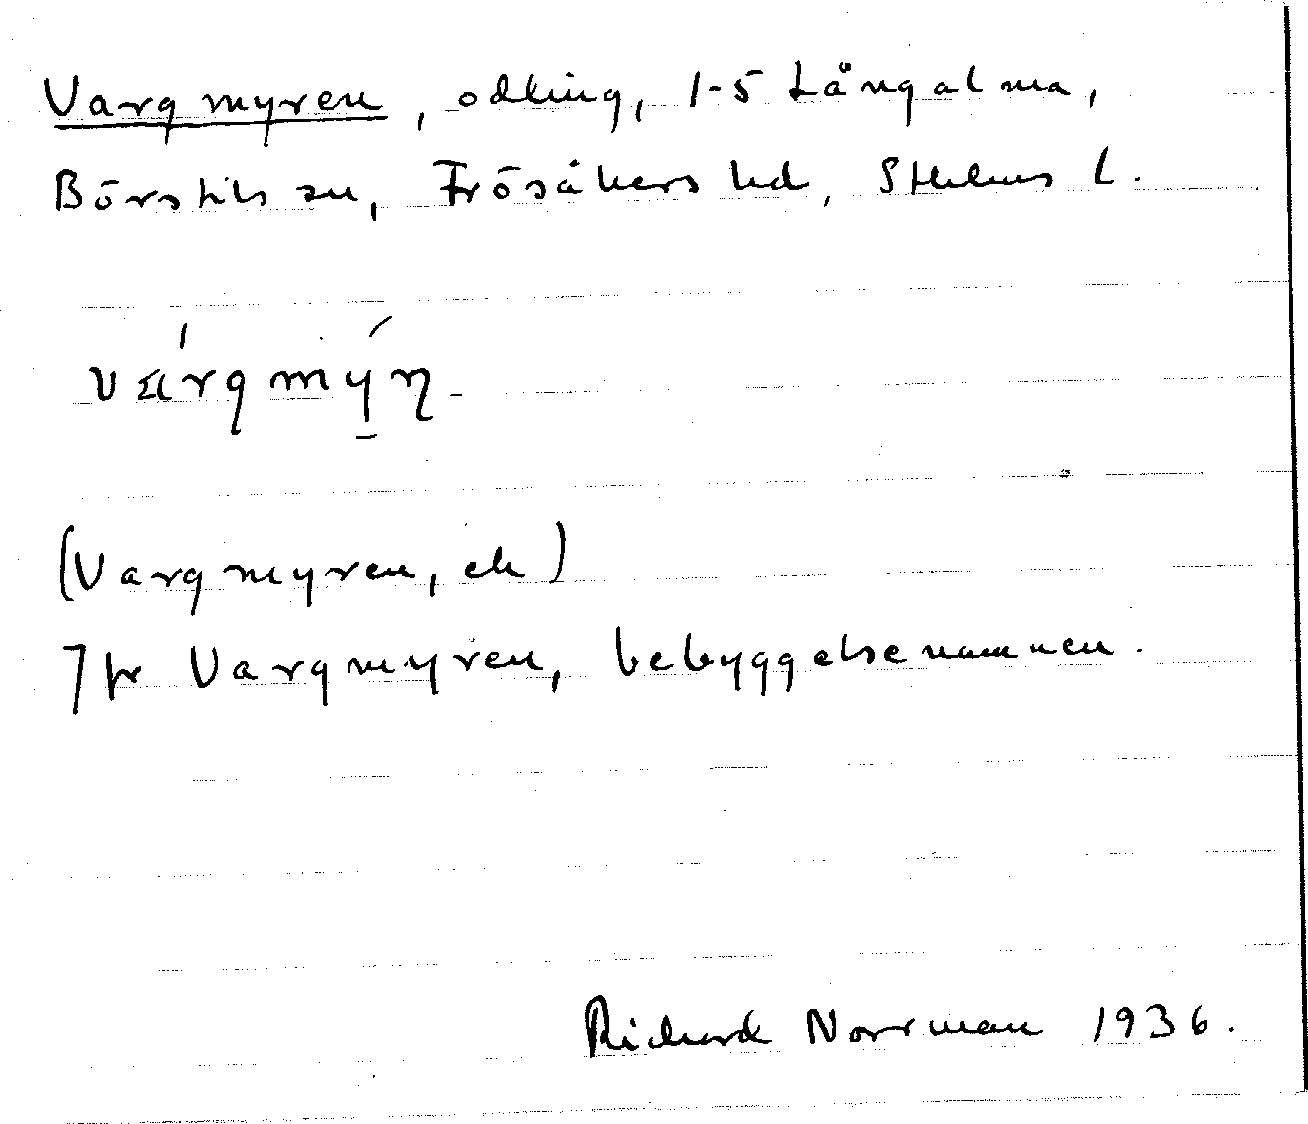 Vargmyren, odling, 1-5 Långalma,
Börstils sn, Frösåkers hd, Sthlms l.
várgmýn
(Vargmyren, ek)
Jfr Vargmyren, bebyggelsenamnen.
Richard Norrman 1936.